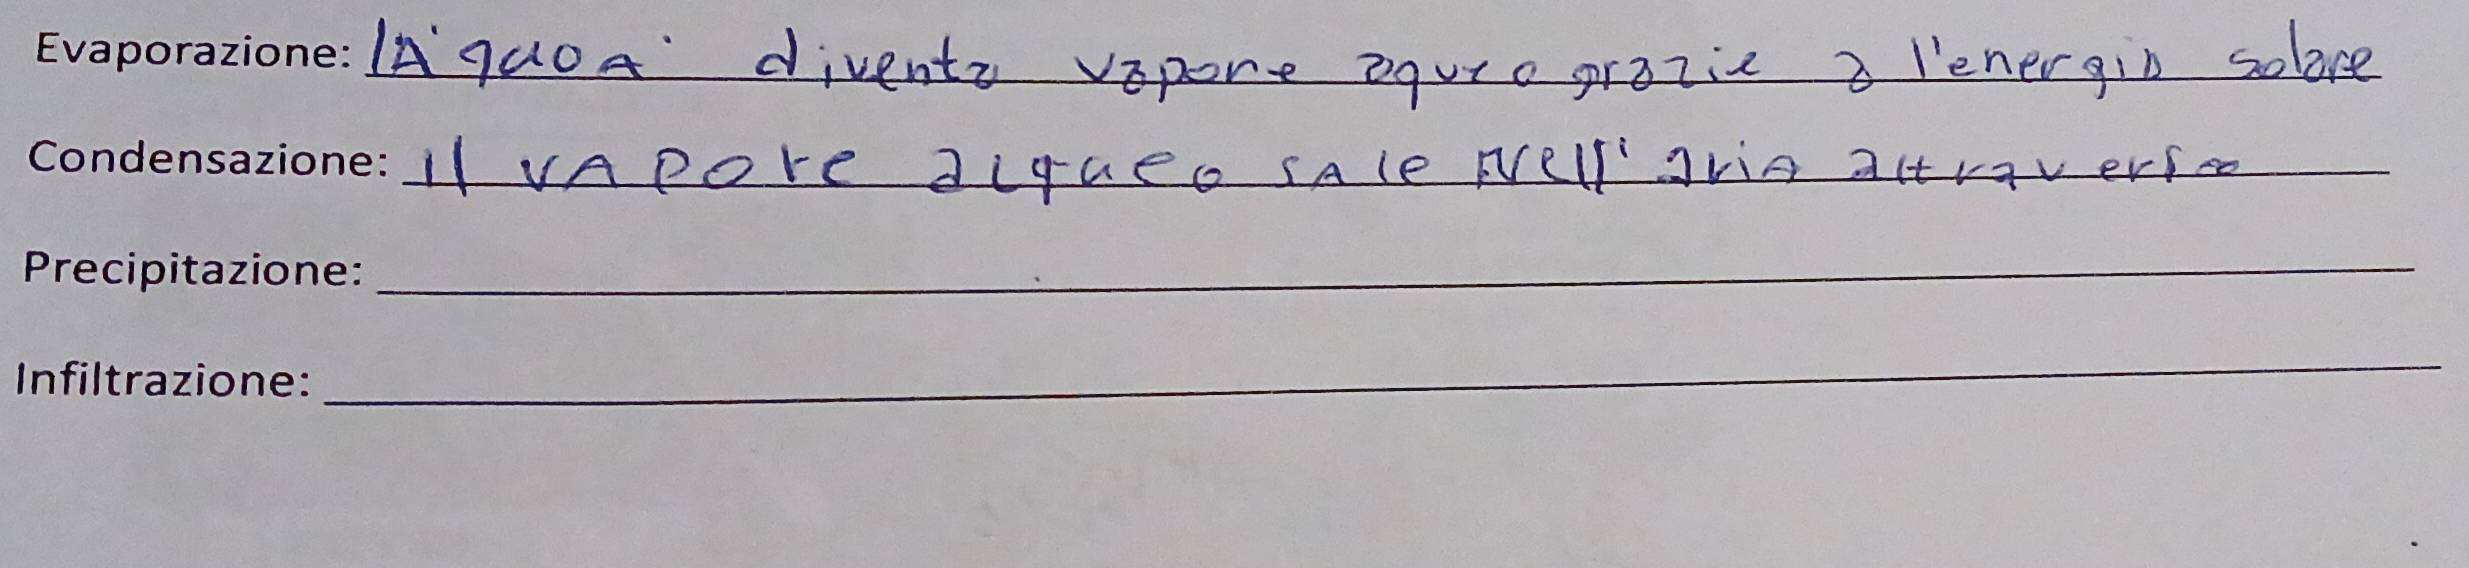 Evaporazione: lA'quoA' diventa vapore aqueo grazie a l'energia solare
Condensazione: Il vApore aiqueo sAle Nell'ariA attraverso
Precipitazione:
Infiltrazione: